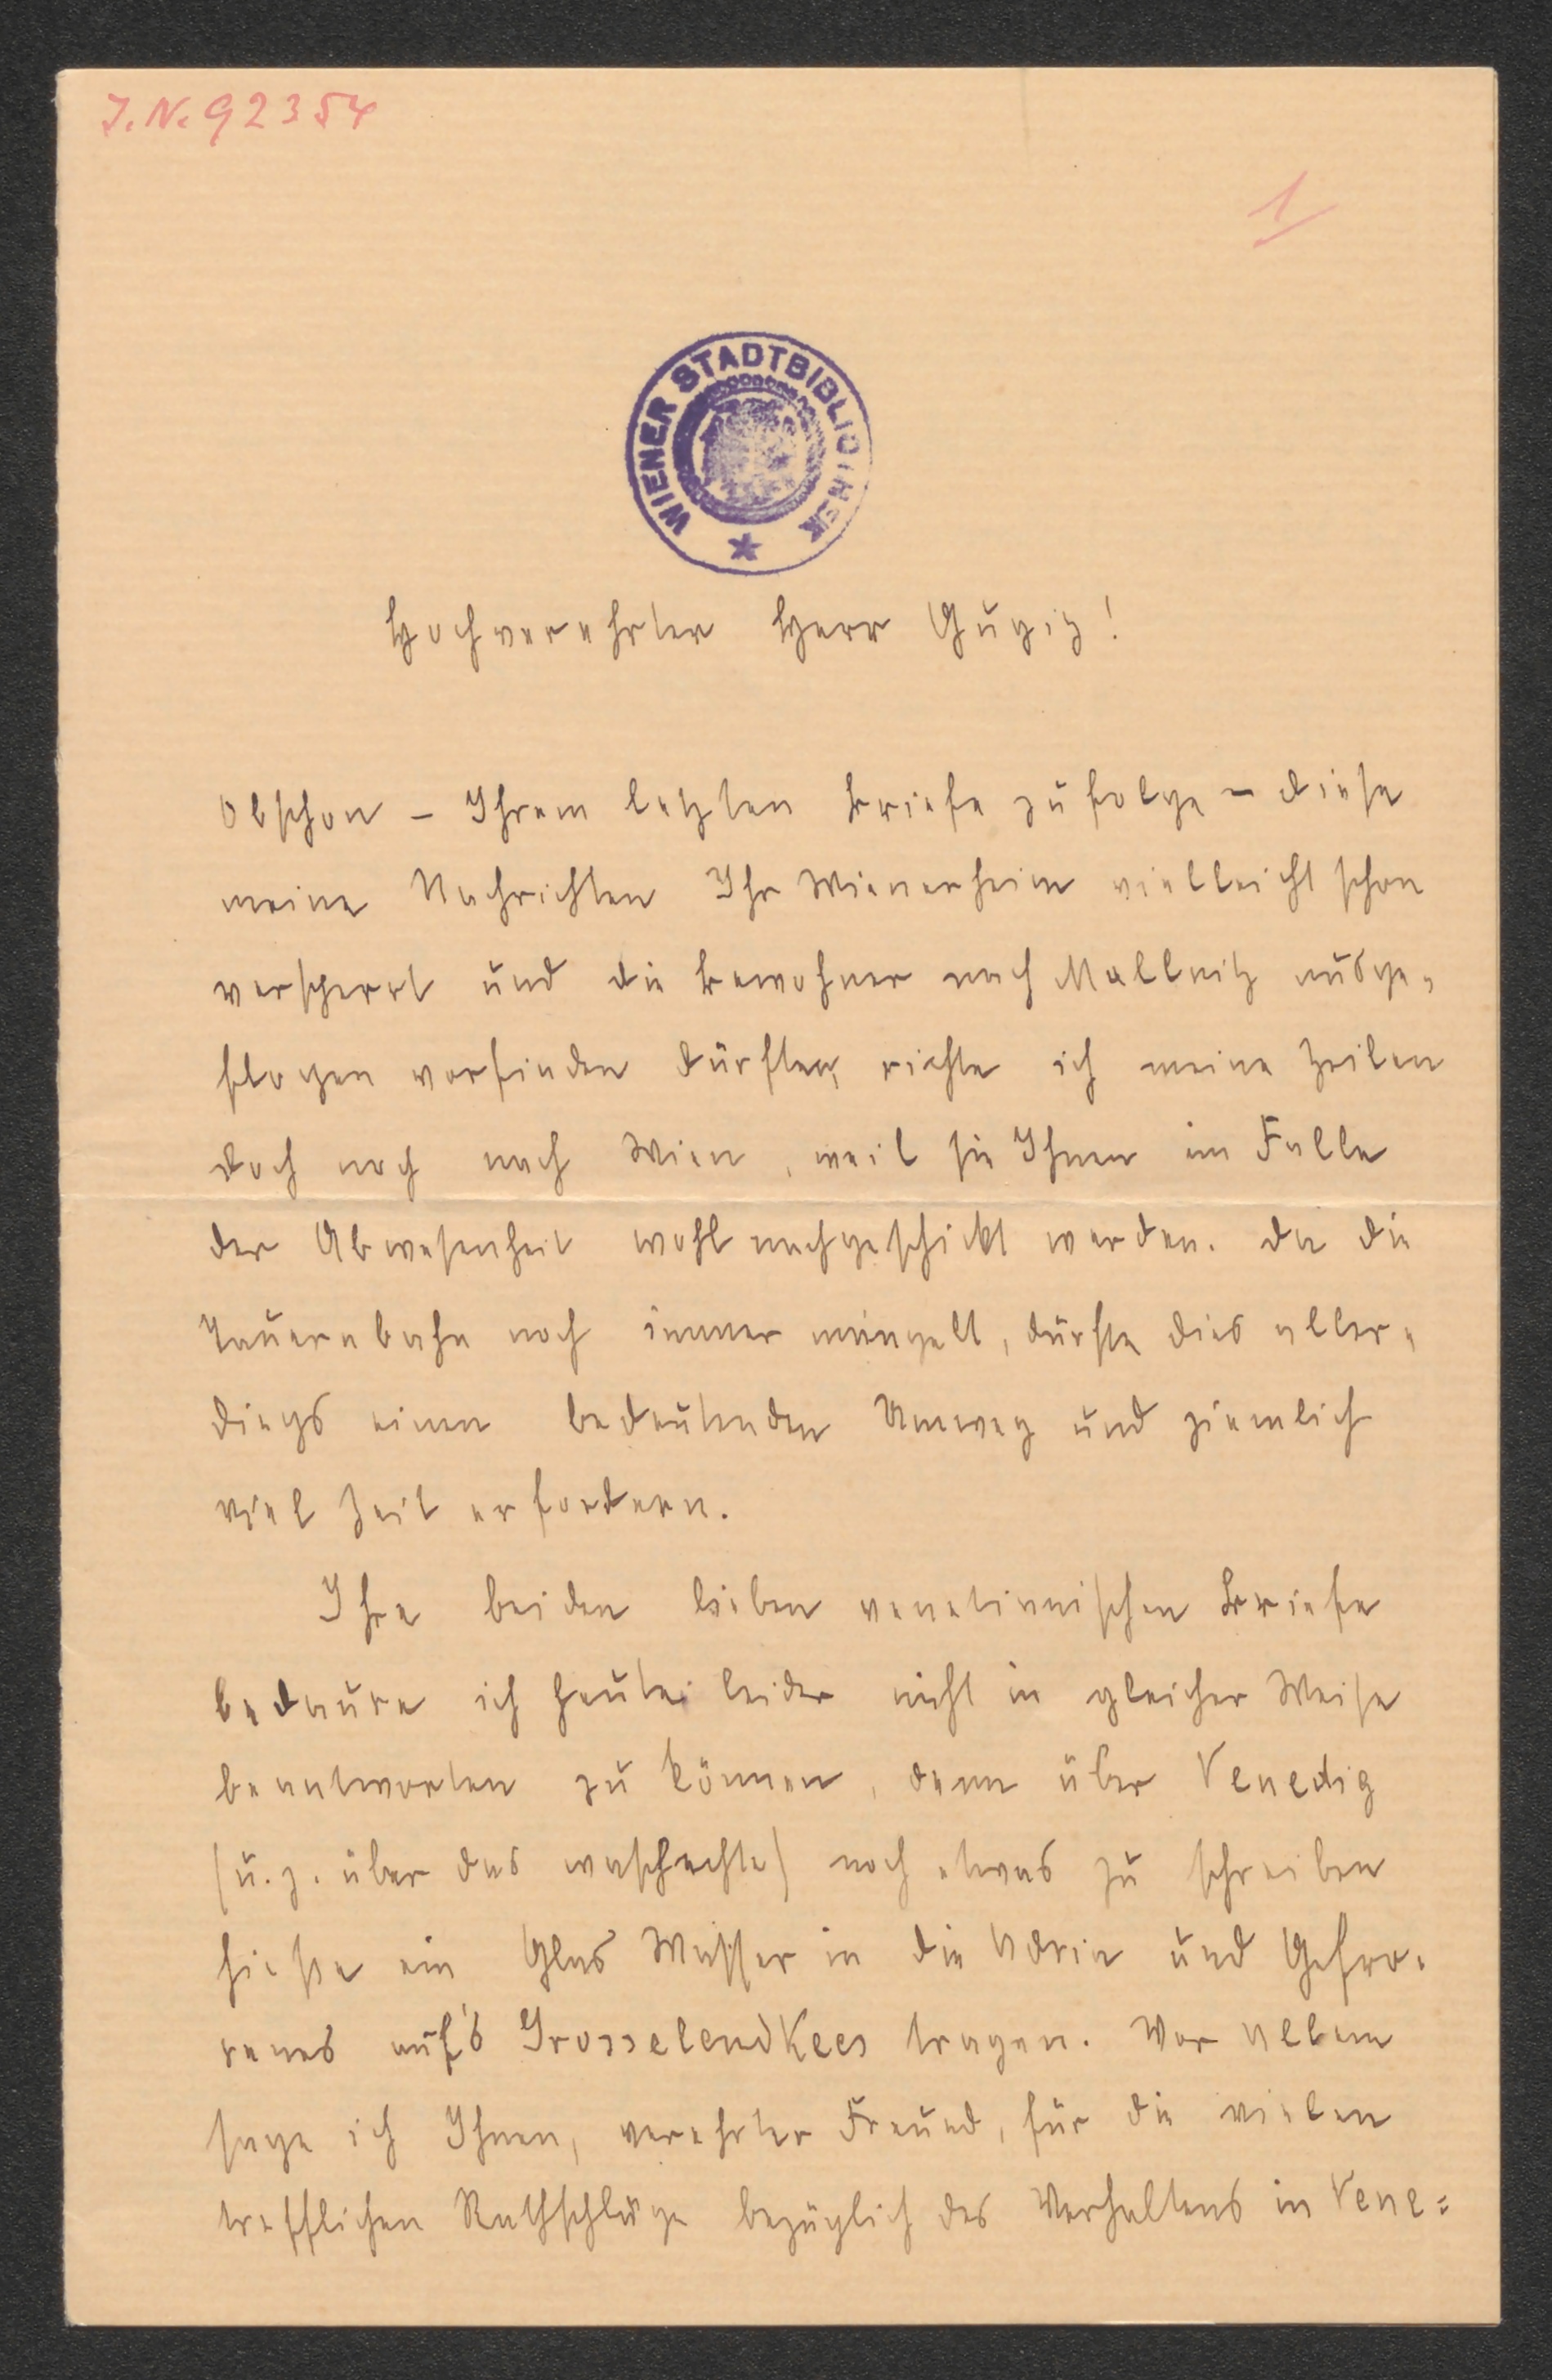 J.N. 92354
1
WIENER STADTBIBLIOTHEK
Hochverehrter Herr Gugiz!
Obschon – Ihrem letzten Briefe zufolge – diese
meine Nachrichten Ihr Wienerheim vielleicht schon
versperrt und die Bewohner nach Mallnitz ausge-
flogen vorfinden dürften, richte ich meine Zeilen
doch noch nach Wien, weil sie Ihnen im Falle
der Abwesenheit wohl nachgeschickt werden. Da die
Tauernbahn noch immer mangelt, dürfte dies aller-
dings einen bedeutenden Umweg und ziemlich
viel Zeit erfordern.
Ihre beiden lieben venetianischen Briefe
bedaure ich heute leider nicht in gleicher Weise
beantworten zu können, denn über Venedig
(u. z. über das waschechte) noch etwas zu schreiben
hieße ein Glas Wasser in die Adria und Gefro-
renes auf's Grosselendkees tragen. Vor allem
sage ich Ihnen, verehrter Freund, für die vielen
trefflichen Rathschläge bezüglich des Verhaltens in Vene=